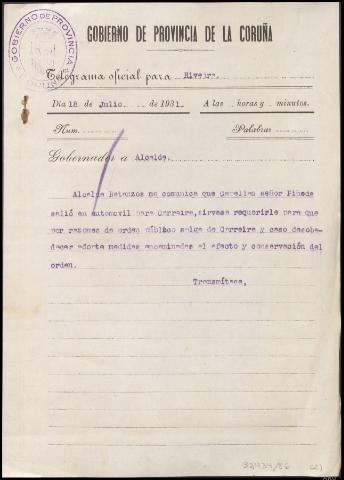 GOBIERNO DE PROVINCIA
GOBIERNO DE PROVINCIA DE LA CORUÑA
Telegrama oficial para Riveira.
Día 18 de Julio. de 1931. A las horas y minutos.
Núm. Palabras
Gobernador a Alcalde.
Alcalde Betanzos me comunica que Capellan señor Pinede
salió en automovil para Carreira, sirvase requerirle para que
por razones de orden público salga de Carreira y caso desobe-
decer adopte medidas encaminadas al efecto y conservación del
orden.
Transmítase,
32434/86